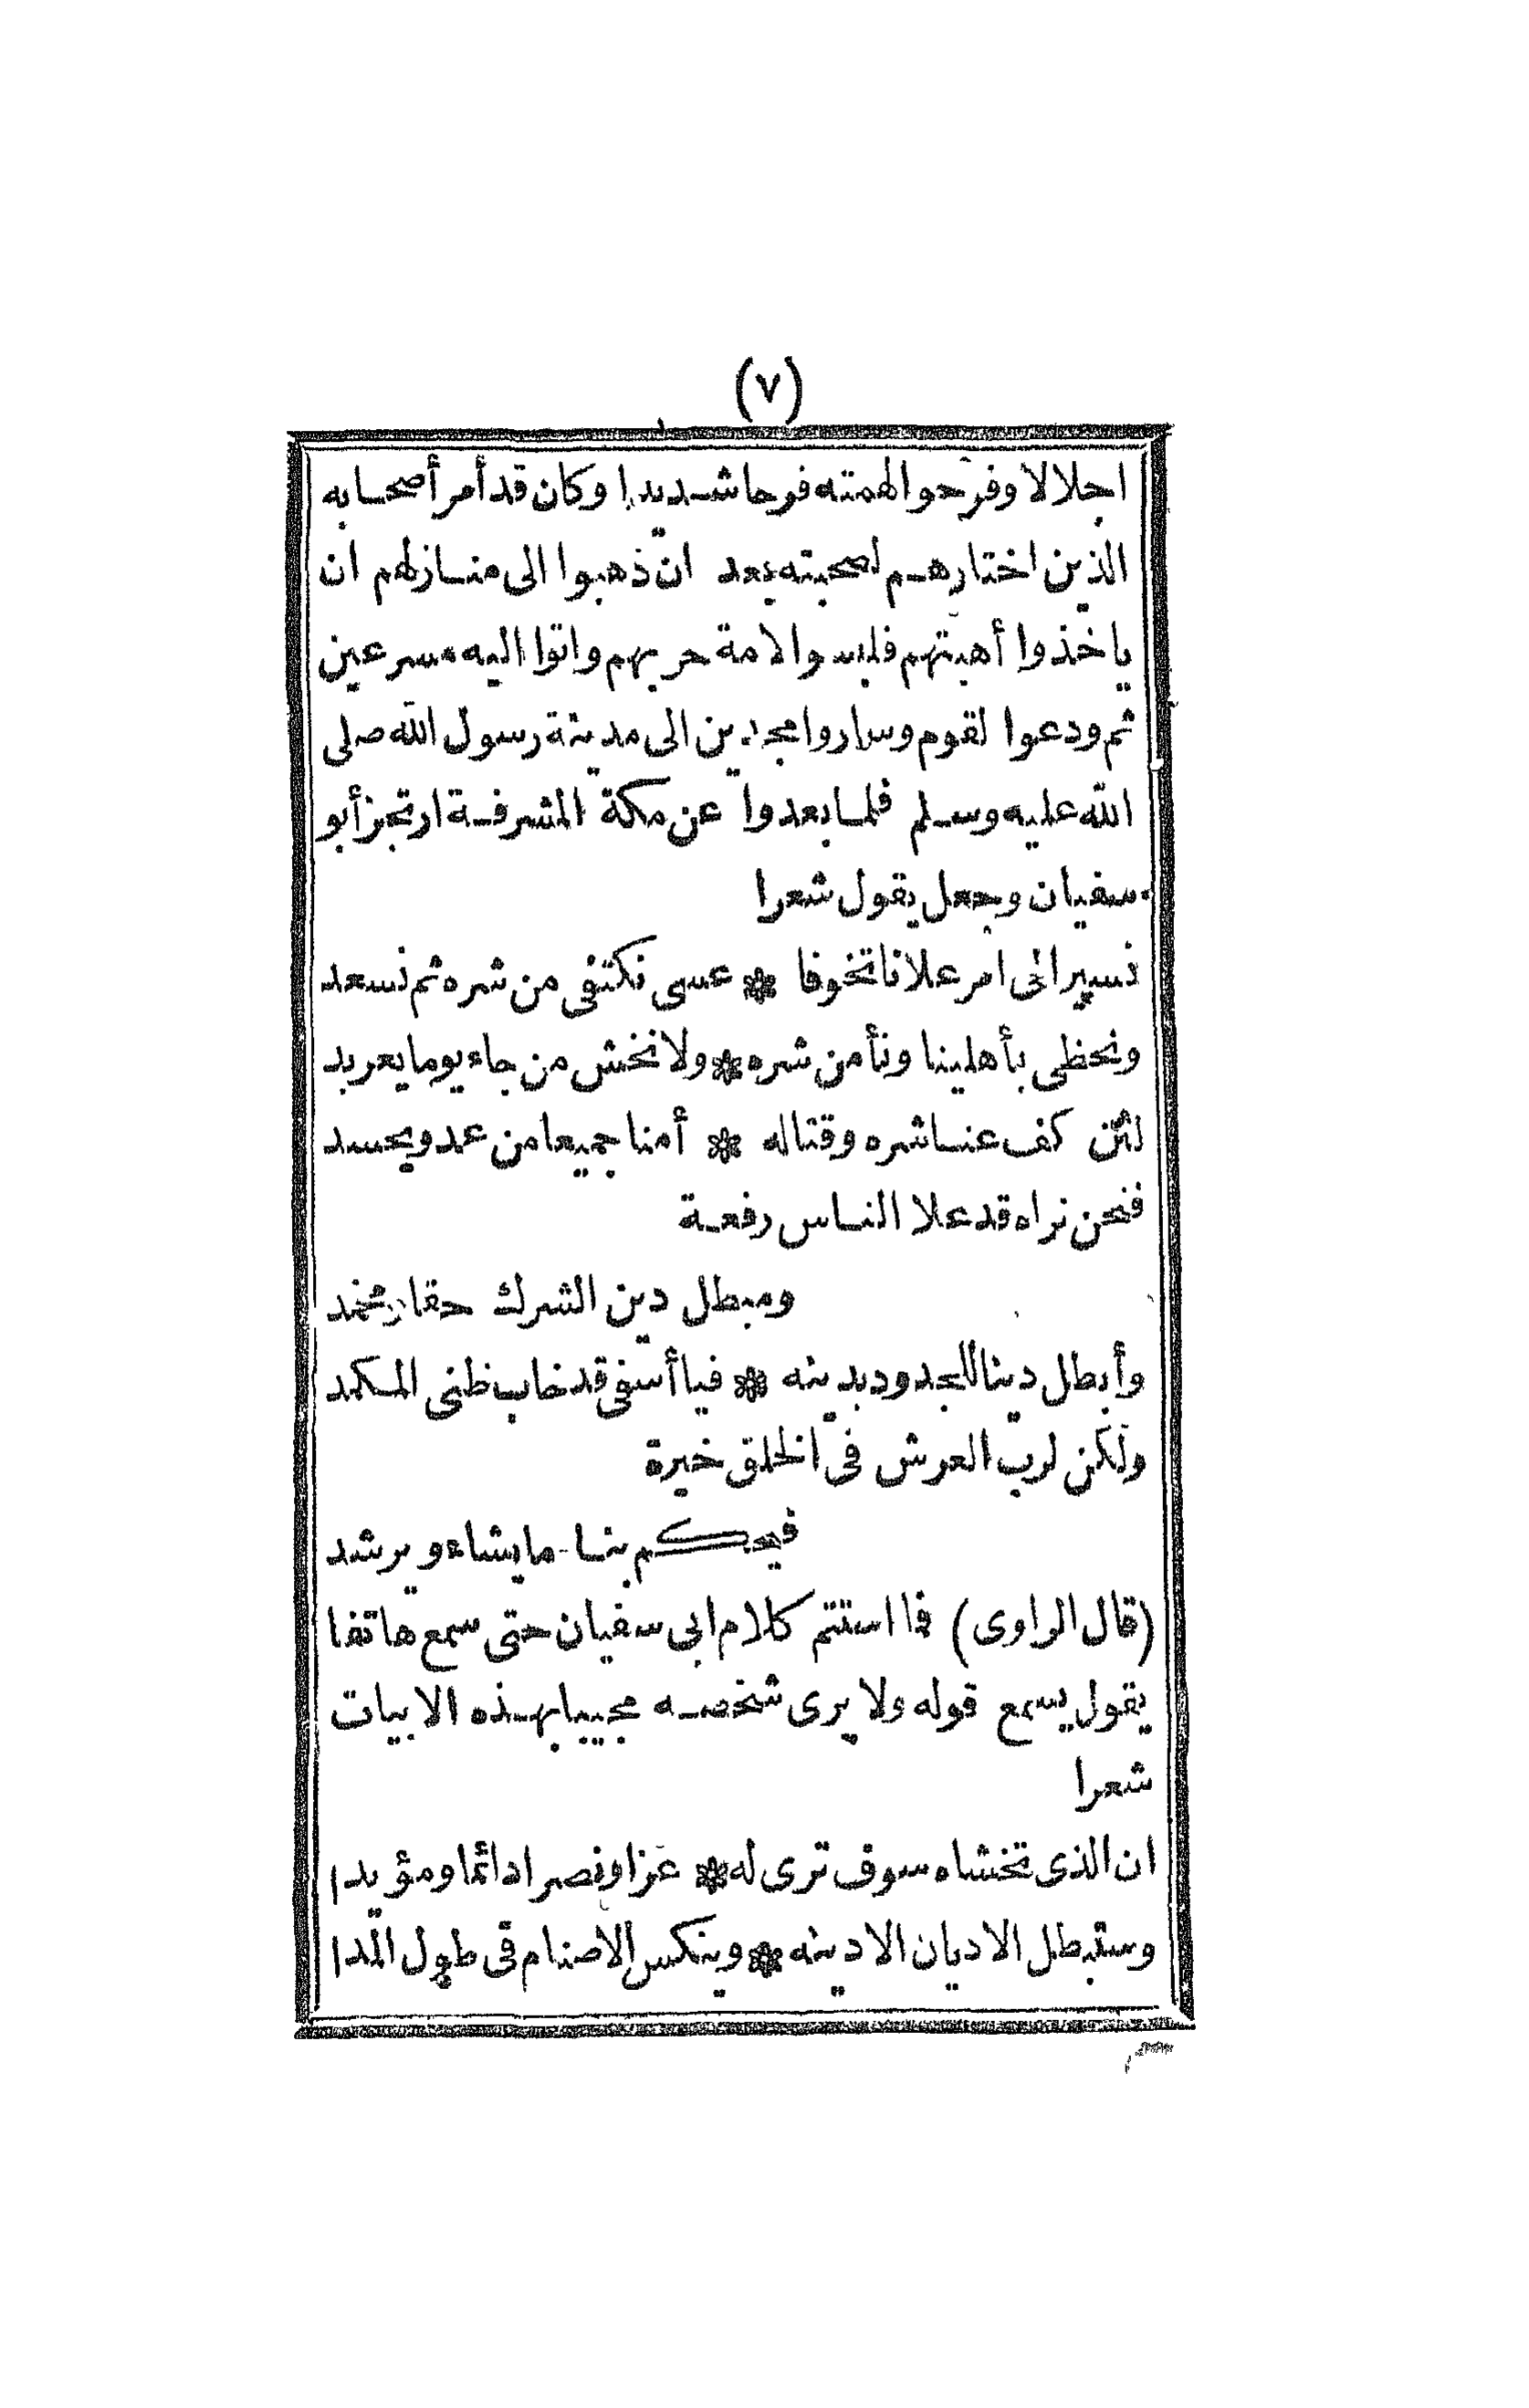 (٧)
اجلالا وفرحوا لهمته فرحا شديدا وكان قد أمر أصحابه
الذين اختارهم لصحبته بعد ان ذهبوا الى منازلهم ان
ياخذوا أهبتهم فلبسوا لامة حربهم واتوا اليه مسرعين
ثم ودعوا لقوم وساروا مجدين الى مدينة رسول الله صلى
الله عليه وسلم فلما بعدوا عن مكة المشرفة ارتجز أبو
سفيان وجعل يقول شعرا
نسير الى امر علانا تخوفا * عسى نكتفى من شره ثم نسعد
ونحظى بأهلينا ونأمن شره * ولا نخش من جاء يوما يعربد
لئن كف عنا شره وقتاله * أمنا جميعا من عدو يحسد
فنحن نراه قد علا الناس رفعة
ومبطل دين الشرك حقا
وأبطل دينا للجدود بدينه * فيا أسفى قد خاب ظنى المكمد
ولكن لرب العرش فى الخلق خيرة
فيحكم بنا ما يشاء ويرشد
(قال الراوى) فما استتم كلام ابى سفيان حتى سمع هاتفا
يقول يسمع قوله ولا يرى شخصه مجيبا بهذه الابيات
شعرا
ان الذى تخشاه سوف ترى له * عزا ونصرا دائما ومؤيدا
وستبطل الاديان الا دينه * وينكس الاصنام فى طول المدا